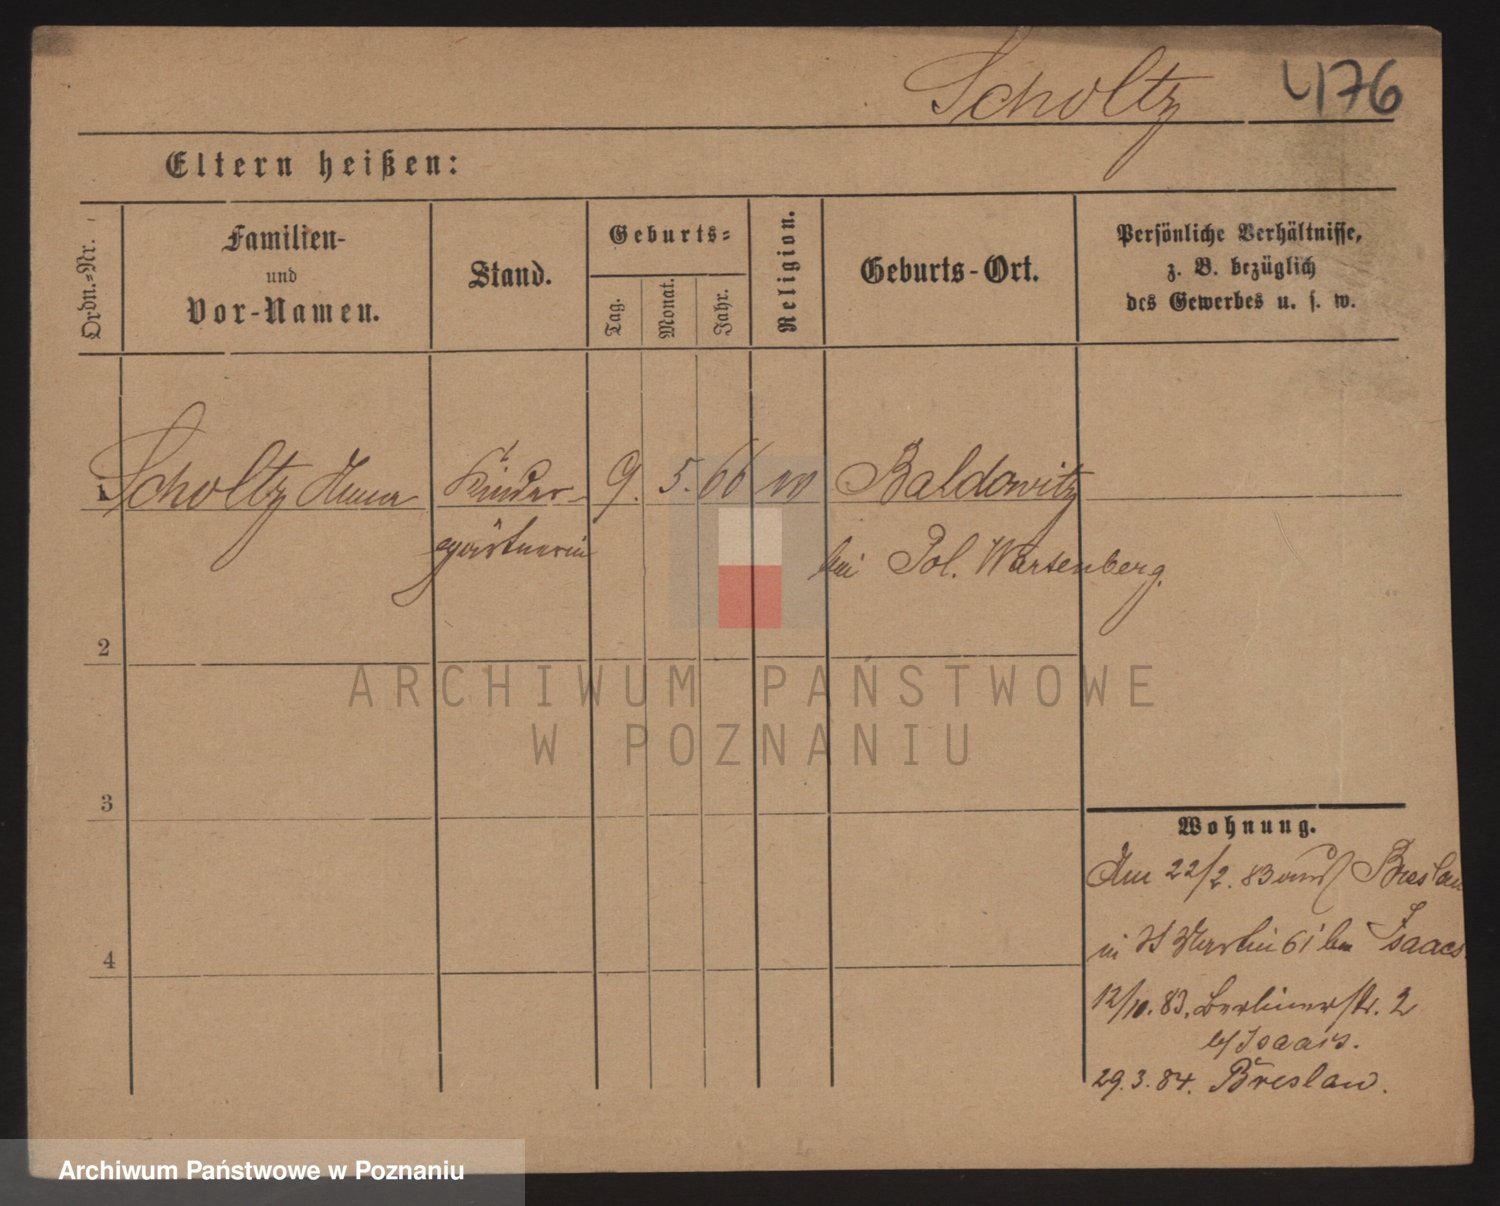 Scholtz 476
Eltern heißen:
Ordn.-Nr.
Familien-
und
Vor-Namen.
Stand.
Geburts-
Tag.
Monat.
Jahr.
Religion.
Geburts-Ort.
Persönliche Verhältnisse,
z. B. bezüglich
des Gewerbes u. s. w.
1 Scholtz Kinder- 9. 5. 66 Baldowitz
gärtnerin bei Pol. Wartenberg.
2
3
4
Wohnung.
Am 22/2. 83 aus Breslau
in St Martin 61 bei Isaacs
12/10. 83. Berlinerstr. 2
b/ Isaacs.
29. 3. 84. Breslau.
ARCHIWUM PAŃSTWOWE
W POZNANIU
Archiwum Państwowe w Poznaniu